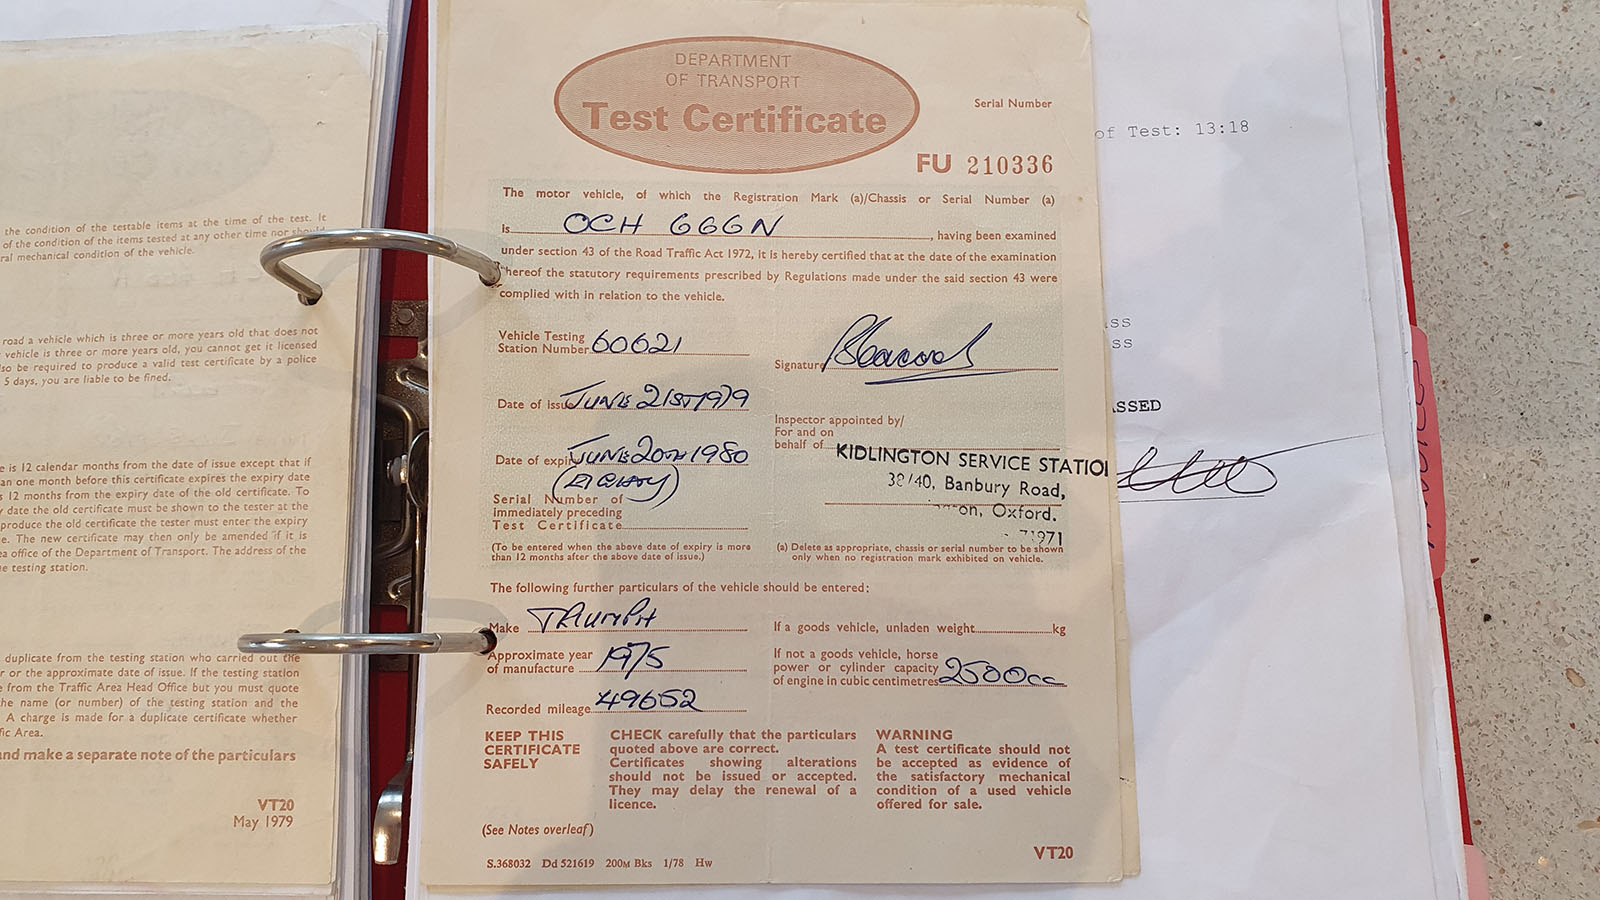 the condition of the testable items at the time of the test. It
of the condition of the items tested at any other time nor should
ral mechanical condition of the vehicle.
road a vehicle which is three or more years old that does not
vehicle is three or more years old, you cannot get it licensed
lso be required to produce a valid test certificate by a police
5 days, you are liable to be fined.
e is 12 calendar months from the date of issue except that if
an one month before this certificate expires the expiry date
s 12 months from the expiry date of the old certificate. To
y date the old certificate must be shown to the tester at the
produce the old certificate the tester must enter the expiry
e. The new certificate may then only be amended if it is
ea office of the Department of Transport. The address of the
e testing station.
duplicate from the testing station who carried out the
r or the approximate date of issue. If the testing station
e from the Traffic Area Head Office but you must quote
the name (or number) of the testing station and the
A charge is made for a duplicate certificate whether
fic Area.
and make a separate note of the particulars
VT20
May 1979
DEPARTMENT
OF TRANSPORT
Test Certificate
Serial Number
FU 210336
The motor vehicle, of which the Registration Mark (a)/Chassis or Serial Number (a)
is OCH 666N, having been examined
under section 43 of the Road Traffic Act 1972, it is hereby certified that at the date of the examination
thereof the statutory requirements prescribed by Regulations made under the said section 43 were
complied with in relation to the vehicle.
Vehicle Testing
Station Number 60621
Signature
Date of issue JUNE 21ST 1979
Inspector appointed by/
For and on
behalf of
KIDLINGTON SERVICE STATIO
38/40, Banbury Road,
on, Oxford.
71971
Date of expiry JUNE 20TH 1980
(EIGHTY)
Serial Number of
immediately preceding
Test Certificate
(To be entered when the above date of expiry is more
than 12 months after the above date of issue.)
(a) Delete as appropriate, chassis or serial number to be shown
only when no registration mark exhibited on vehicle.
The following further particulars of the vehicle should be entered:
Make TRIUMPH
If a goods vehicle, unladen weight kg
Approximate year
of manufacture 1975
If not a goods vehicle, horse
power or cylinder capacity
of engine in cubic centimetres 2500cc
Recorded mileage 49652
KEEP THIS
CERTIFICATE
SAFELY
CHECK carefully that the particulars
quoted above are correct.
Certificates showing alterations
should not be issued or accepted.
They may delay the renewal of a
licence.
WARNING
A test certificate should not
be accepted as evidence of
the satisfactory mechanical
condition of a used vehicle
offered for sale.
(See Notes overleaf)
VT20
S.368032 Dd 521619 200M Bks 1/78 Hw
of Test: 13:18
ss
ss
ASSED